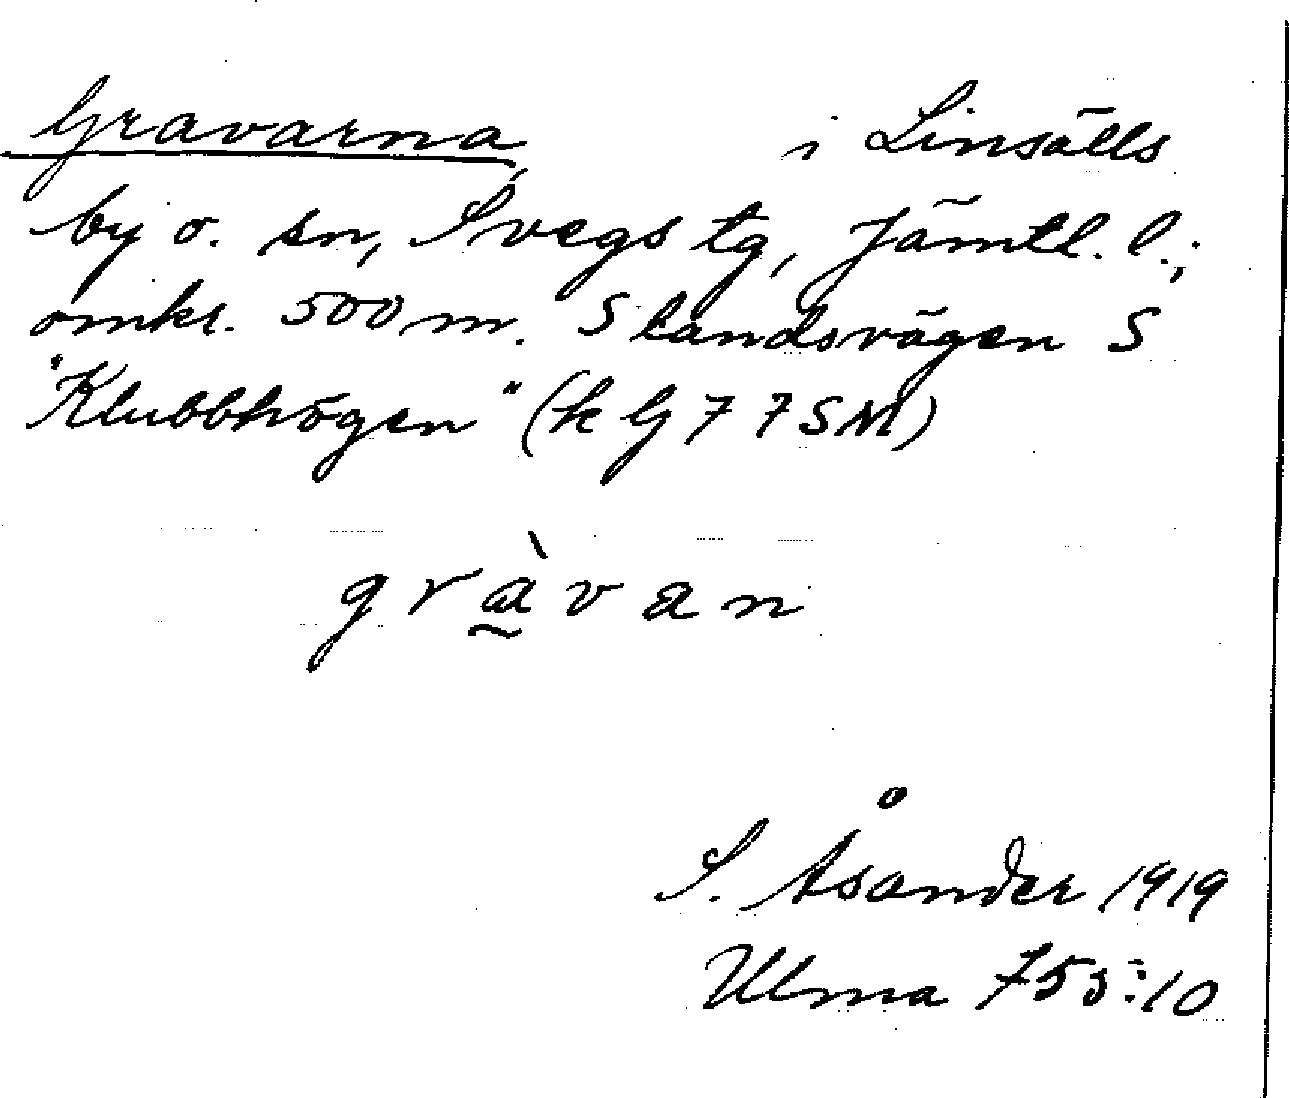 Gravarna, i Linsälls
by o. sn, Svegs tg, Jämtl. l.;
omkr. 500 m. S landsvägen S
"Klubbhögen" (k G 7 7 SM)
gràvan
S. Åsander 1919
Ulma 753:10